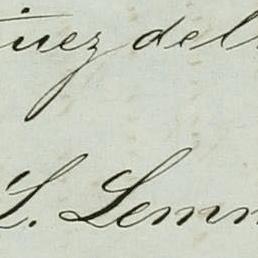 uez del
L. Lemm